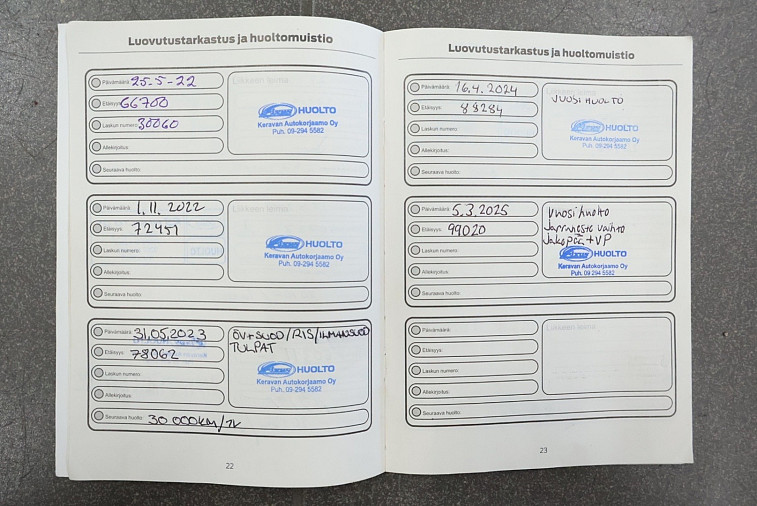 Luovutustarkastus ja huoltomuistio
Päivämäärä: 25-5-22
Liikkeen leima
Etäisyys: 66700
HUOLTO
Laskun numero: 30060
Keravan Autokorjaamo Oy
Puh. 09-294 5582
Allekirjoitus:
Seuraava huolto:
Päivämäärä: 1.11.2022
Liikkeen leima
Etäisyys: 72451
HUOLTO
Laskun numero:
Keravan Autokorjaamo Oy
Puh. 09-294 5582
Allekirjoitus:
Seuraava huolto:
Päivämäärä: 31.05.2023
ÖV+SUOD/RIS/ILMANSUOD
TULPAT
Etäisyys: 78062
HUOLTO
Laskun numero:
Keravan Autokorjaamo Oy
Puh. 09-294 5582
Allekirjoitus:
Seuraava huolto: 30 000KM/1V
22
Luovutustarkastus ja huoltomuistio
Päivämäärä: 16.4.2024
VUOSIHUOLTO
Etäisyys: 88284
HUOLTO
Laskun numero:
Keravan Autokorjaamo Oy
Puh. 09-294 5582
Allekirjoitus:
Seuraava huolto:
Päivämäärä: 5.3.2025
Vuosihuolto
Jarruneste vaihto
Jakopää+VP
Etäisyys: 99020
HUOLTO
Laskun numero:
Keravan Autokorjaamo Oy
Puh. 09-294 5582
Allekirjoitus:
Seuraava huolto:
Päivämäärä:
Liikkeen leima
Etäisyys:
Laskun numero:
Allekirjoitus:
Seuraava huolto:
23